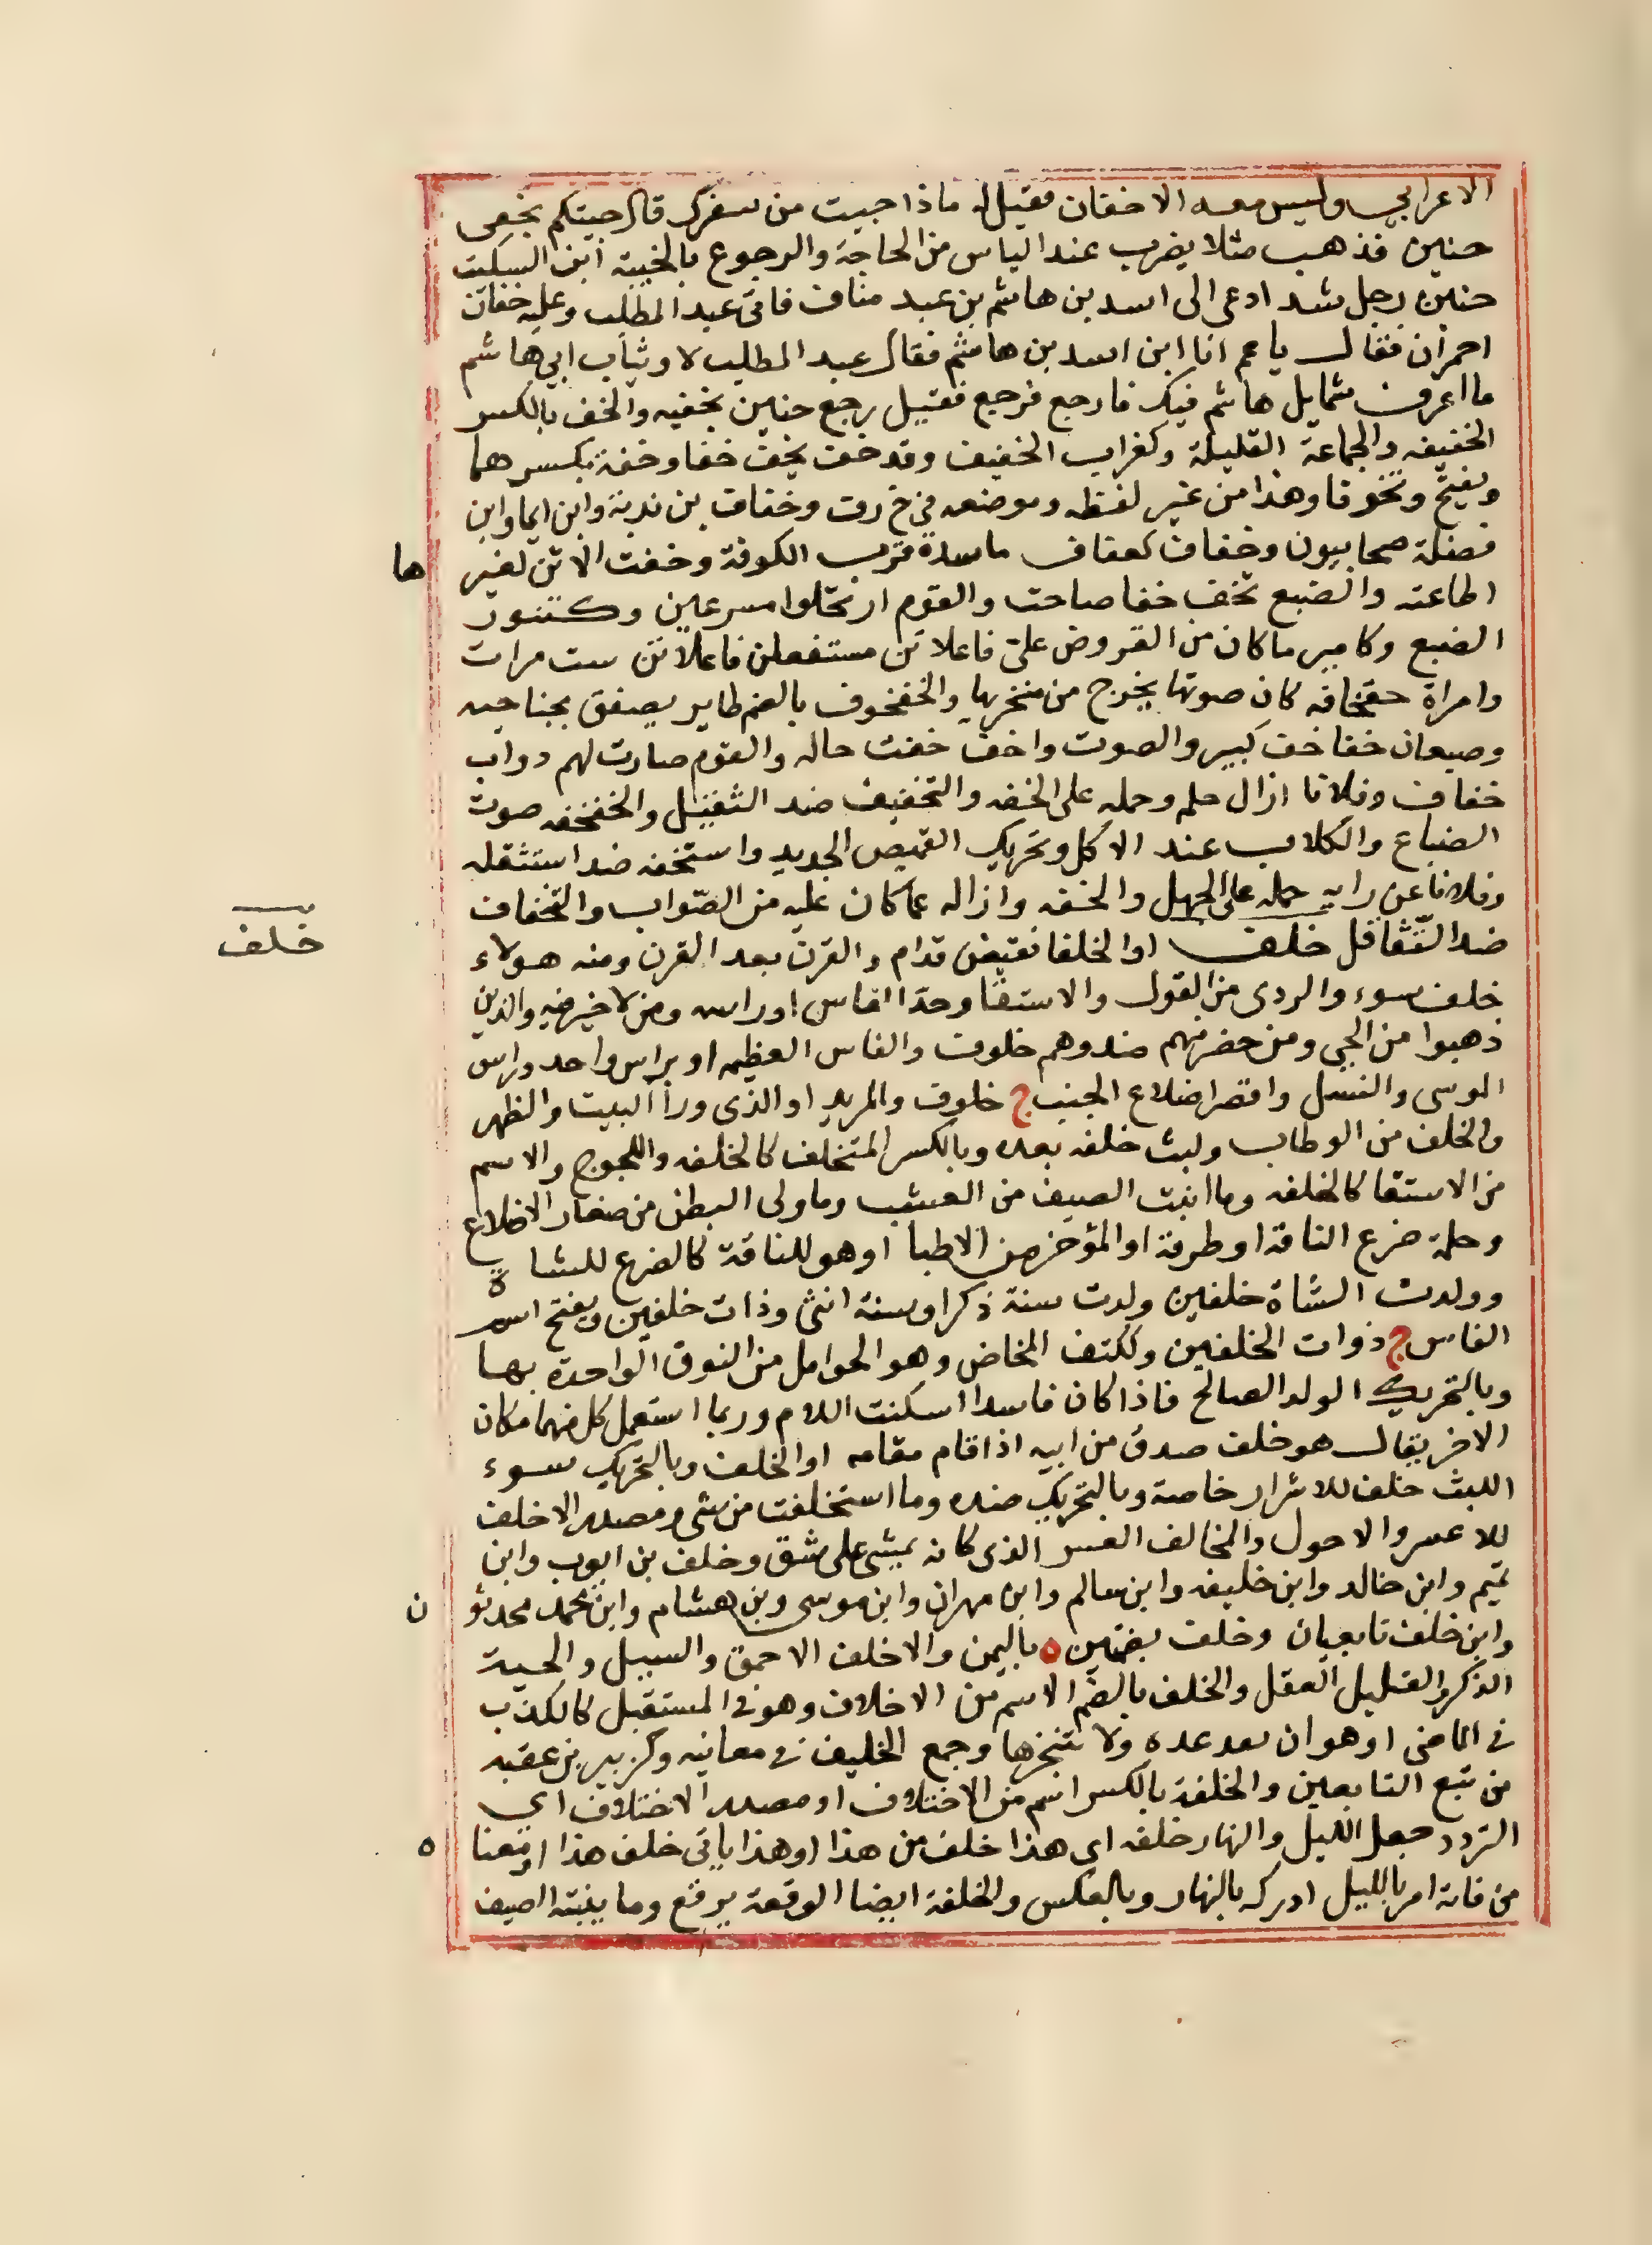 الاعرابي وليس معه الا خفان فقيل له ماذا جيت من سفرك قال جيتكم بخفى
حنين فذهب مثلا يضرب عند الياس من الحاجة والرجوع بالخيبة ابن السكيت
حنين رجل شد ادعى الى اسد بن هاشم بن عبد مناف فاتى عبد المطلب وعليه خفان
احمران فقال يا عم انا ابن اسد بن هاشم فقال عبد المطلب لا وثياب ابي هاشم
ما اعرف شمايل هاشم فيك فارجع فرجع فقيل رجع حنين بخفيه والخف بالكسر
الخفيف والجماعة القليلة وكغراب الخفيف وقد خف يخف خفا وخفة بكسرهما
ويفتح وتخوفا وهذا من غير لفظه وموضعه في خ و ف وخفاف بن ندبة وابن ايما وابن
فضلة صحابيون وخفاف كعفاف ماسدة قرب الكوفة وخفت الاتن لعير ها
اطاعته والضبع تخف خفا صاحت والقوم ارتحلوا مسرعين وكتنور
الضبع وكامير ما كان من العروض على فاعلاتن مستفعلن فاعلاتن ست مرات
وامراة خفخافه كان صوتها يخرج من منخريها والخفخوف بالضم طاير يصفق بجناحيه
وضبعان خفاخف كبير والصوت واخف خفت حاله والقوم صارت لهم دواب
خفاف وفلانا ازال حلمه وحمله على الخفه والتخفيف ضد الثقيل والخفخفه صوت
الضباع والكلاب عند الاكل وتحريك القميص الجديد واستخفه ضد استثقله
وفلانا عن رايه حمله على الجهل والخفه وازاله عما كان عليه من الصواب والتخفاف
ضد التثاقل خلف او الخلفا نقيض قدام والقرن بعد القرن ومنه هولاء
خلف سوء والردى من القول والاستقا وحد الفاس او راسه ومن لا خير فيه والذين
ذهبوا من الحي ومن حضر منهم ضد وهم خلوف والفاس العظيمه او براس واحد وراس
الموسى والنسل واقصر اضلاع الجنب ج خلوف والمربد او الذى ورا البيت والظهر
والخلف من الوطاب ولبث خلفه بعده وبالكسر المتخلف كالخلفه واللجوج والاسم
من الاستقا كالخلفه وما انبت الصيف من العشب وما ولى البطن من صغار الاضلاع
وحلمة ضرع الناقة او طرفة او المؤخر من الاطبا او هو للناقة كالضرع للشاة
وولدت الشاة خلفين ولدت سنة ذكرا وسنة انثى وذات خلفين ويفتح اسم
الفاس ج ذوات الخلفين وككتف المخاض وهو الحوامل من النوق الواحدة بها
وبالتحريك الولد الصالح فاذا كان فاسدا اسكنت اللام وربما استعمل كل منهما مكان
الاخر يقال هو خلف صدق من ابيه اذا قام مقامه او الخلف وبالتحريك سوء
الليث خلف للاشرار خاصة وبالتحريك ضده وما استخلفت من شى ومصدر الاخلف
للاعسر والاحول والمخالف العسر الذى كانه يمشى على شق وخلف بن ايوب وابن
تميم وابن خالد وابن خليفه وابن سالم وابن مهران وابن موسى وبن هشام وابن محمد محدثو ن
وابن خلف تابعيان وخلف بضمتين ه باليمن والاخلف الاحمق والسيل والحية
الذكر والقليل العقل والخلف بالضم الاسم من الاخلاف وهو في المستقبل كالكذب
في الماضى او هو ان تعد عده ولا تنجزها وجمع الخليف في معانيه وكزبير بن عقبه
من تبع التابعين والخلفة بالكسر اسم من الاختلاف او مصدر الاختلاف اي
التردد جعل الليل والنهار خلفه اى هذا خلف من هذا او هذا ياتى خلف هذا او معنا ه
من فاته امر بالليل ادركه بالنهار وبالعكس والخلفة ايضا الرقعة يرقع وما ينبته الصيف
خلف